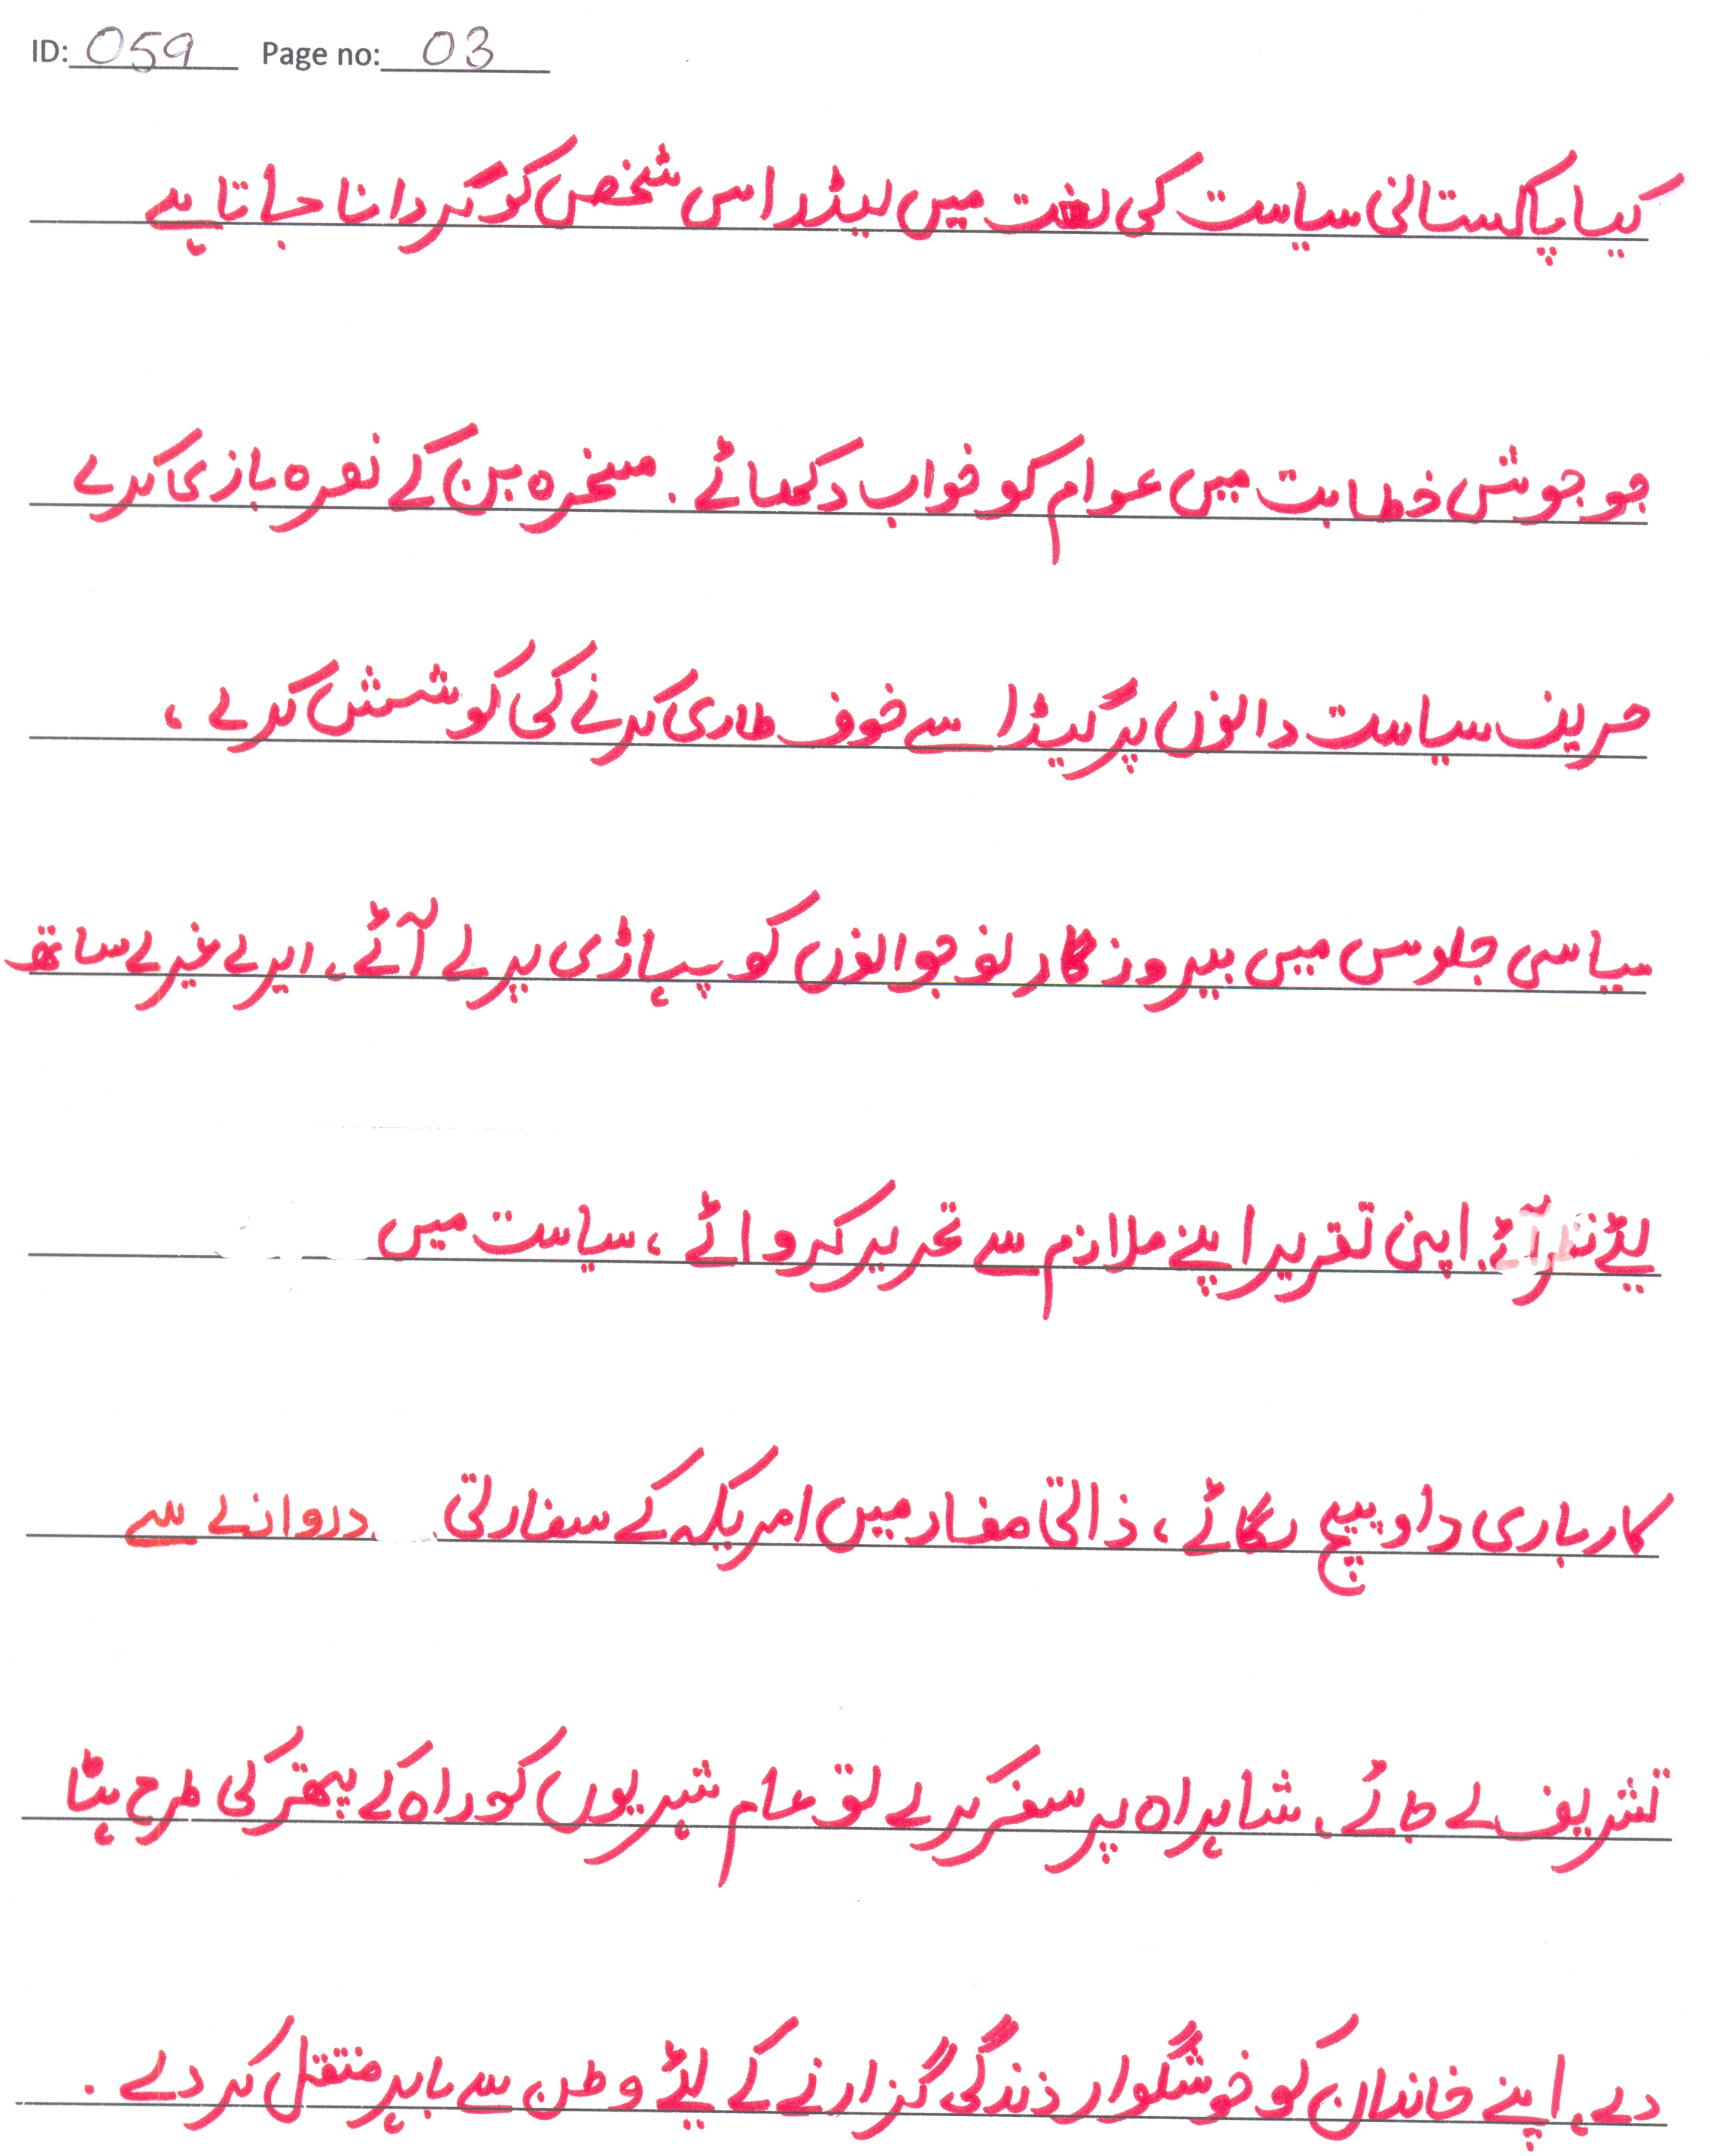 ID: 059 Page no: 03
کیا پاکستانی سیاست کی لغت میں لیڈر اس شخص کو گردانا جاتا ہے
جو جوش خطابت میں عوام کو خواب دکھائے ۔ مسخرہ بن کے نعرہ بازی کرے
حریف سیاست دانوں پر کیڑا سے خوف طاری کرنے کی کوشش کرے ،
سیاسی جلوس میں بیروزگار نوجوانوں کو پہاڑی پر لے آئے ، ایرے غیرے ساتھ
لئے نظر آئے ۔ اپنی تقریر اپنے ملازم سے تحریر کروائے ، سیاست میں
کارباری داوپیچ لگائے ، ذاتی مفاد میں امریکہ کے سفارتی دروازے سے
تشریف لے جائے ، شاہراہ پر سفر کرے تو عام شہریوں کو راہ کے پتھر کی طرح ہٹا
دے ، اپنے خاندان کو خوشگوار زندگی گزارنے کے لئے وطن سے باہر منتقل کر دے ۔